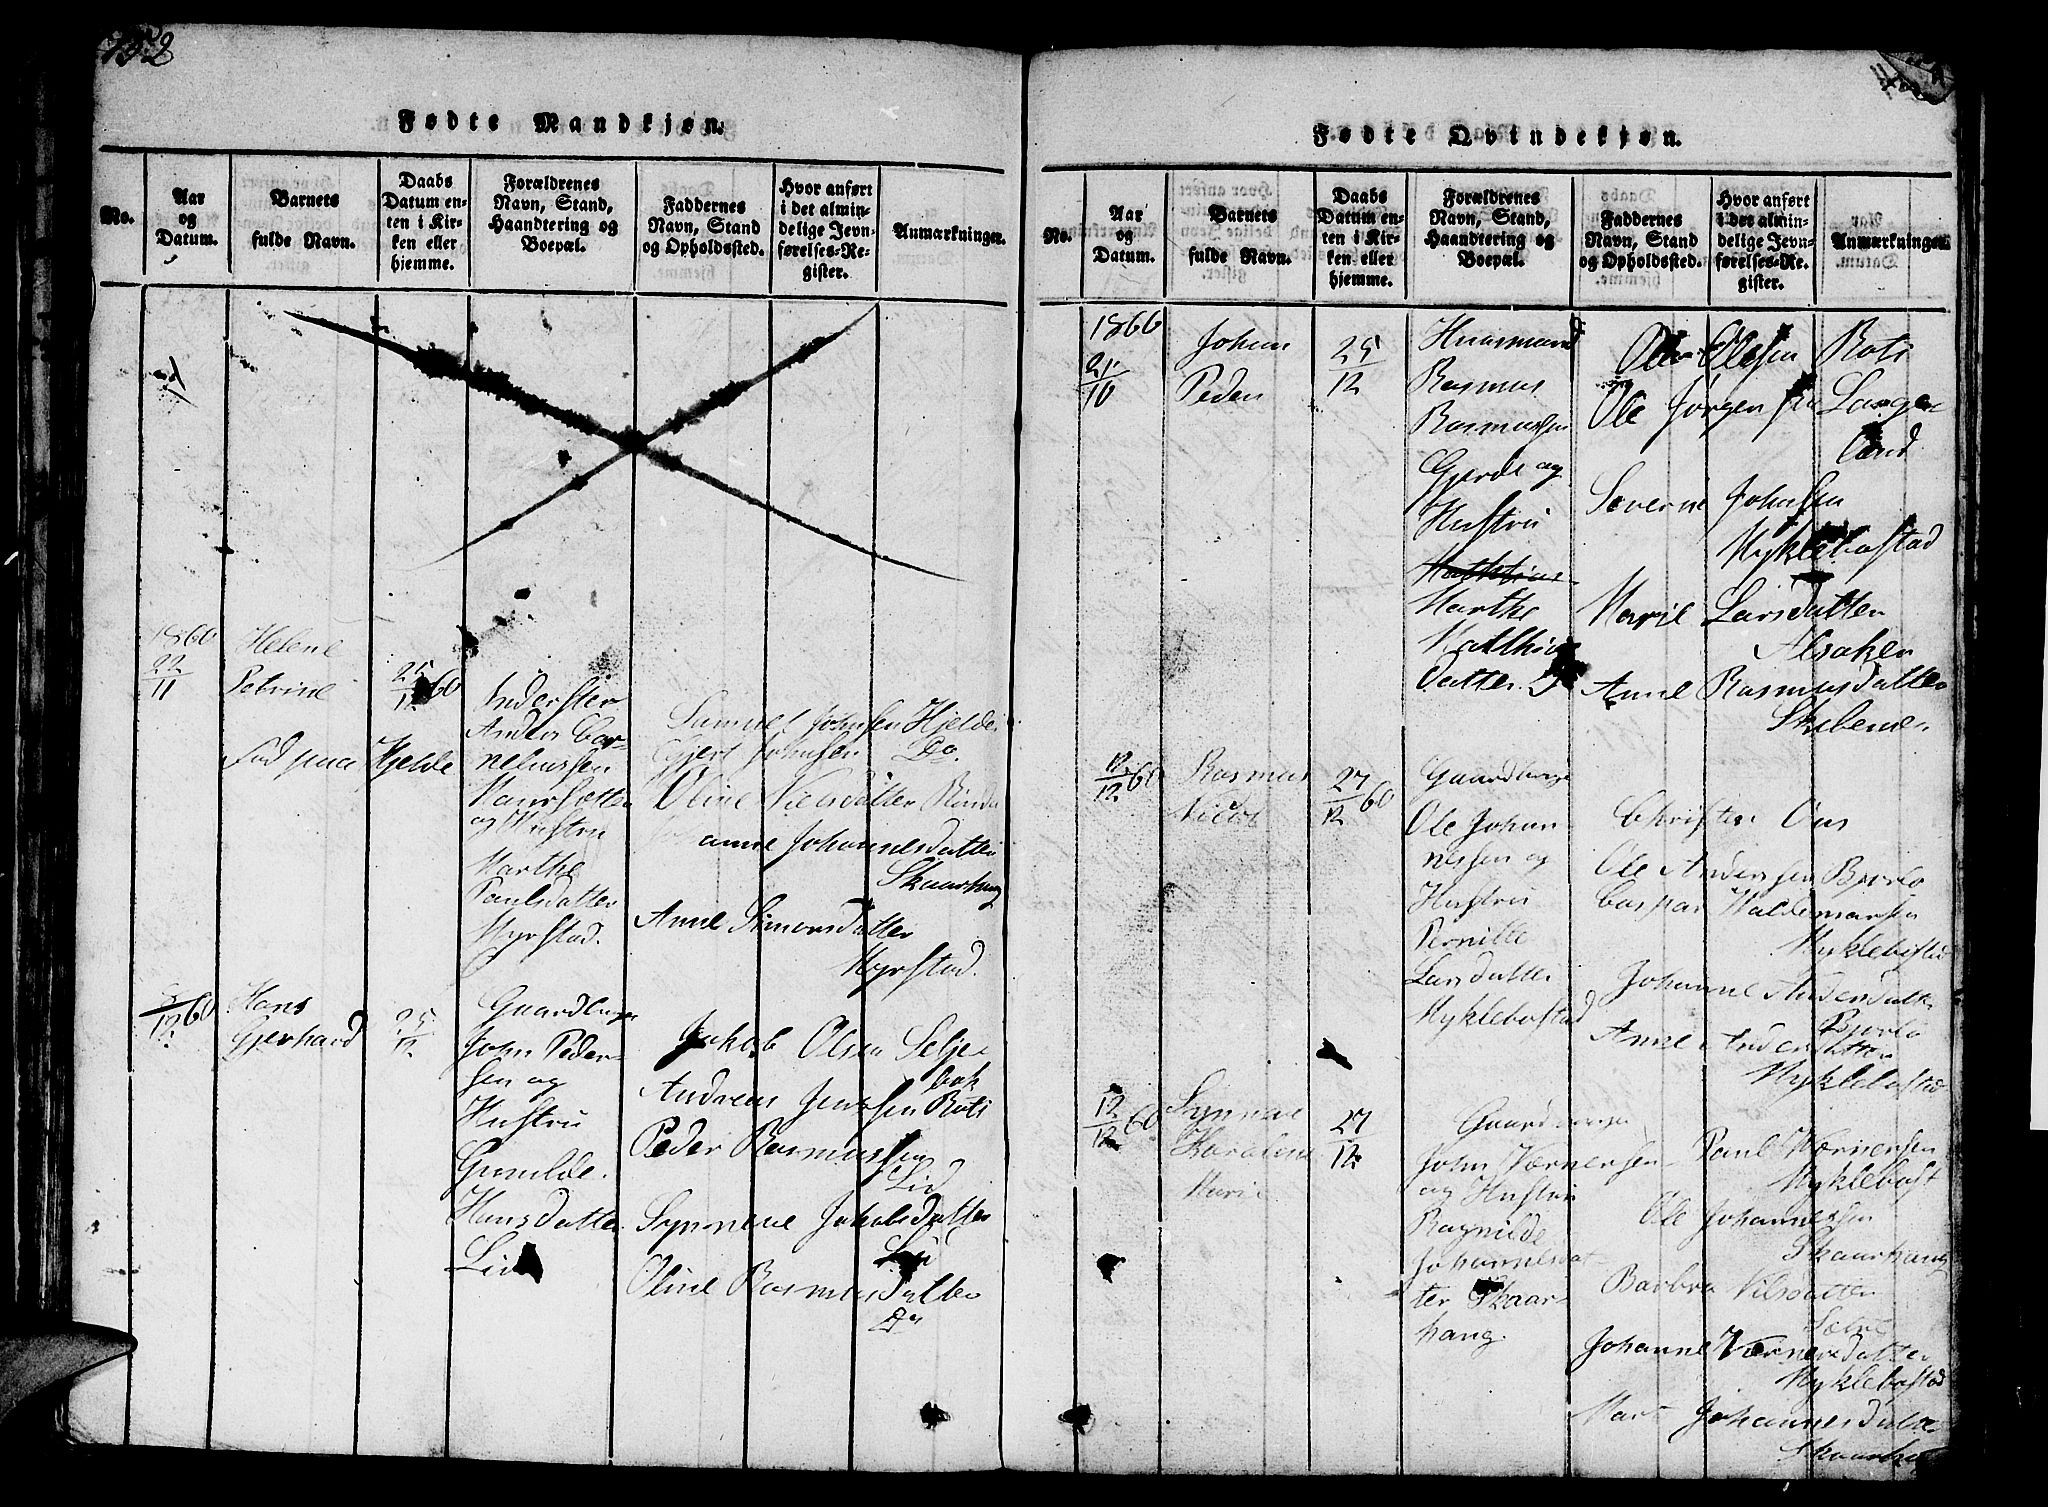 152
Fødte Mandkjøn.
No.
Aar
og
Datum.
Barnets
fulde Navn.
Daabs
Datum en-
ten i Kir-
ken eller
hjemme.
Forældrenes
Navn, Stand,
Haandtering og
Boepæl.
Faddernes
Navn, Stand
og Opholdssted.
Hvor anført
i det almin-
delige Jevn-
førelses-Re-
gister.
Anmærkninger.
1860
22
11
Helene
Petrine
Fød paa Hjelde
25
12 60
Inderster
Anders Cor-
neliussen
og Hustru
Marthe
Paulsdatter
Myrstad.
Samuel Johnsen Hjelde
Gjert Johnsen Do.
Oline Nielsdatter
Johanne Johannesdatter
Skaarhaug
Anne Simonsdatter
Myrstad.
12 60
Hans
Gjerhard
25
12
Gaardbruger
John Peder-
sen og
Hustru
Gunilde
Hansdatter
Lid
Jakob Olsen Selje-
bak
Andreas Jenssen Roti
Peder Rasmussen
Lid
Synneve Jakobsdatter
Lid
Oline Rasmusdatter
Do
Fødte Qvindekjøn.
No.
Aar
og
Datum.
Barnets
fulde Navn.
Daabs
Datum en-
ten i Kir-
ken eller
hjemme.
Forældrenes
Navn, Stand,
Haandtering og
Boepæl.
Faddernes
Navn, Stand
og Opholdssted.
Hvor anført
i det almin-
delige Jevn-
førelses-Re-
gister.
Anmærkninger.
1860
21
10
Johan
Peder
25
12
Huusmand
Rasmus
Rasmussen
Gjerde og
Hustru
Marthe
Datter
Ole Olesen Roti
Ole Jørgensen Lange-
land
Severine Johnsen
Myklebostad
Marie Larsdatter
Alsaker
Anne Rasmusdatter
12
12 60
Rasmus
Nicol
27
12 60
Gaardbruger
Ole Johan-
nessen og
Hustru
Pernille
Larsdatter
Myklebostad
Christen Aas
Ole Andersen Bjørlo
Caspar Valdemarsen
Myklebostad
Johanne Andersdatter
Bjørlo
Anne Andersdatter
Myklebostad
12
12 60
Synneve
Karoline
Marie
27
12
Gaardbruger
John Værnersen
og Hustru
Ragnilde
Johannesdat-
ter Skaar-
haug.
Paul Værnersen
Myklebost
Ole Johannessen
Skaarhaug
Barbra Nilsdatter
Sætre
Johanne Værnersdatter
Myklebostad
Johannesdatter
Skaarhaug